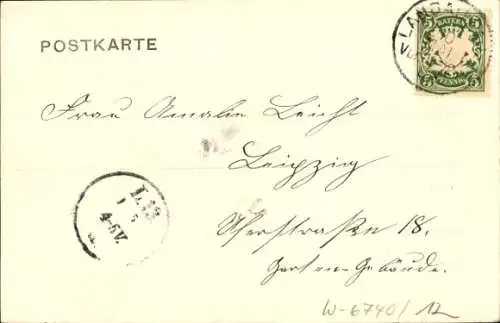 POSTKARTE
LANDAU
5 BAYERN 5
5 PFENNIG 5
Frau Amalie Leicht
Leipzig
Uferstraße 18.
Garten-Gebäude.
L.13.
4-5V.
W-6740/12